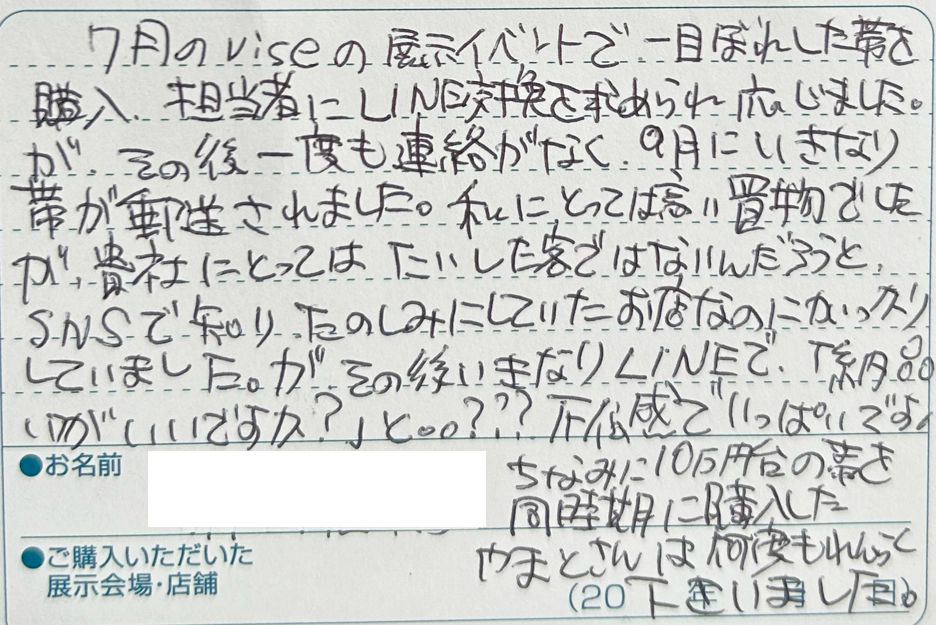 7月のviseの展示イベントで一目ぼれした帯を
購入、担当者にLINE交換を求められ応じました。
が、その後一度も連絡がなく、9月にいきなり
帯が郵送されました。私にとっては高い買物でした
が、貴社にとってはたいした客ではないんだろうと、
SNSで知り、たのしみにしていたお店なのにがっかり
していました。が、その後いきなりLINEで、「納品
いかがいいですか?」と。。??? 不信感でいっぱいです。
●お名前
ちなみに10万円台の帯を
同時期に購入した
やまとさんは何度もれんらく
●ご購入いただいた
展示会場・店舗
(20 下さいました。